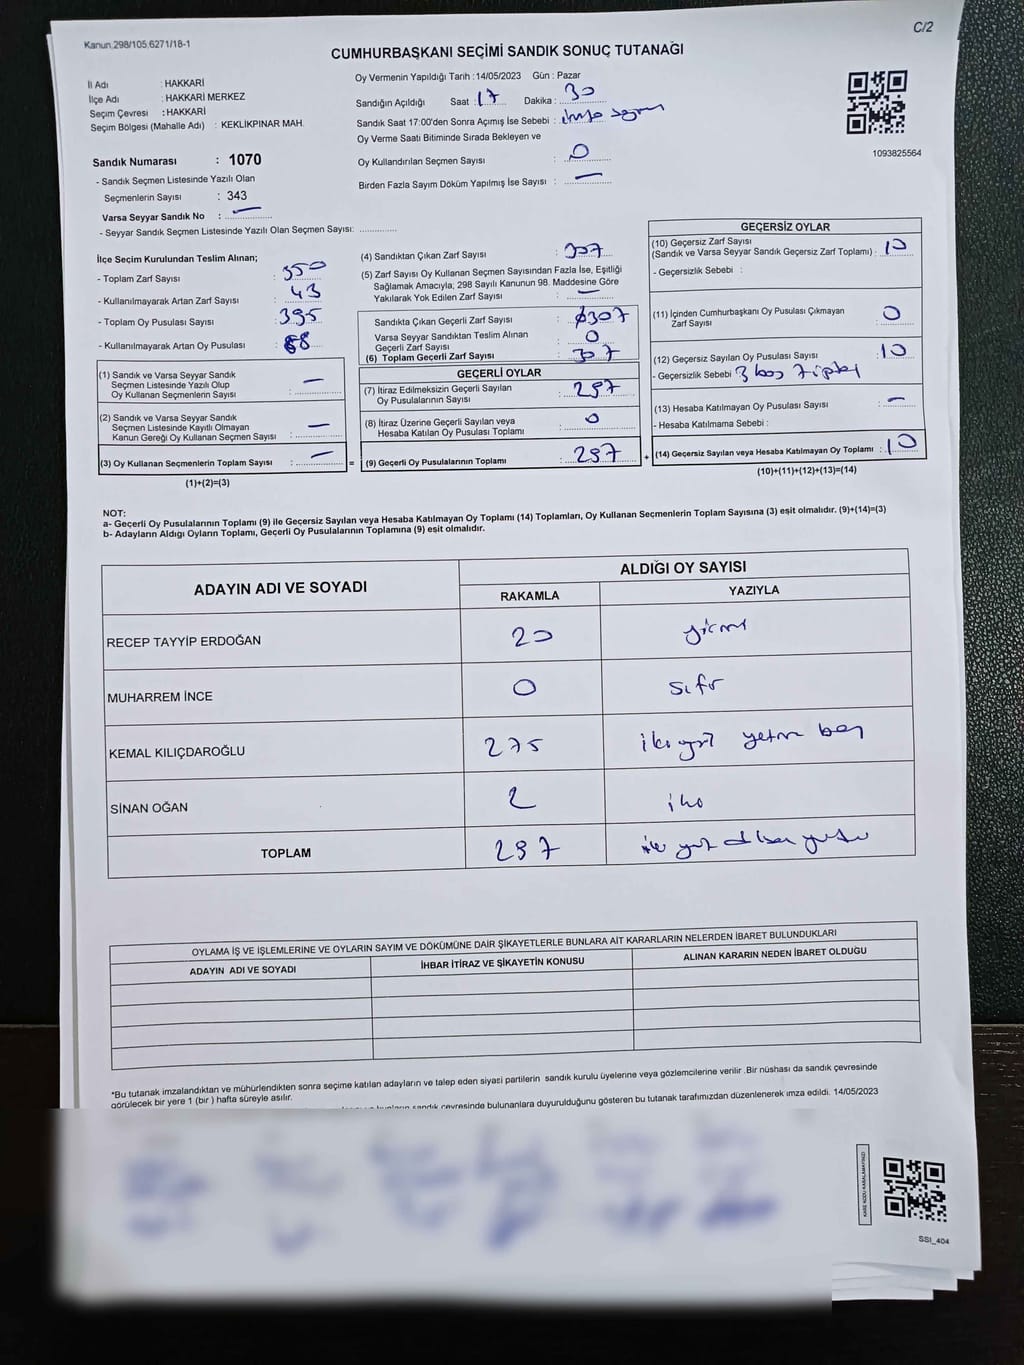 C/2
Kanun:298/105,6271/18-1
CUMHURBAŞKANI SEÇİMİ SANDIK SONUÇ TUTANAĞI
İl Adı : HAKKARİ
İlçe Adı : HAKKARİ MERKEZ
Seçim Çevresi : HAKKARİ
Seçim Bölgesi (Mahalle Adı) : KEKLİKPINAR MAH.
Oy Vermenin Yapıldığı Tarih : 14/05/2023 Gün : Pazar
Sandığın Açıldığı Saat : 17 Dakika : 30
Sandık Saat 17:00'den Sonra Açımış İse Sebebi :
Oy Verme Saati Bitiminde Sırada Bekleyen ve
Oy Kullandırılan Seçmen Sayısı : 0
Birden Fazla Sayım Döküm Yapılmış İse Sayısı : —
1093825564
Sandık Numarası : 1070
- Sandık Seçmen Listesinde Yazılı Olan
Seçmenlerin Sayısı : 343
Varsa Seyyar Sandık No : —
- Seyyar Sandık Seçmen Listesinde Yazılı Olan Seçmen Sayısı: ............
İlçe Seçim Kurulundan Teslim Alınan;
- Toplam Zarf Sayısı : 350
- Kullanılmayarak Artan Zarf Sayısı : 43
- Toplam Oy Pusulası Sayısı : 395
- Kullanılmayarak Artan Oy Pusulası : 88
(1) Sandık ve Varsa Seyyar Sandık
Seçmen Listesinde Yazılı Olup
Oy Kullanan Seçmenlerin Sayısı : —
(2) Sandık ve Varsa Seyyar Sandık
Seçmen Listesinde Kayıtlı Olmayan
Kanun Gereği Oy Kullanan Seçmen Sayısı : —
(3) Oy Kullanan Seçmenlerin Toplam Sayısı : —
=
(1)+(2)=(3)
(4) Sandıktan Çıkan Zarf Sayısı : 307
(5) Zarf Sayısı Oy Kullanan Seçmen Sayısından Fazla İse, Eşitliği
Sağlamak Amacıyla; 298 Sayılı Kanunun 98. Maddesine Göre
Yakılarak Yok Edilen Zarf Sayısı : —
Sandıkta Çıkan Geçerli Zarf Sayısı : 307
Varsa Seyyar Sandıktan Teslim Alınan
Geçerli Zarf Sayısı : 0
(6) Toplam Geçerli Zarf Sayısı : 307
GEÇERLİ OYLAR
(7) İtiraz Edilmeksizin Geçerli Sayılan
Oy Pusulalarının Sayısı : 297
(8) İtiraz Üzerine Geçerli Sayılan veya
Hesaba Katılan Oy Pusulası Toplamı : 0
(9) Geçerli Oy Pusulalarının Toplamı : 297
+
GEÇERSİZ OYLAR
(10) Geçersiz Zarf Sayısı
(Sandık ve Varsa Seyyar Sandık Geçersiz Zarf Toplamı) : 10
- Geçersizlik Sebebi :
(11) İçinden Cumhurbaşkanı Oy Pusulası Çıkmayan
Zarf Sayısı : 0
(12) Geçersiz Sayılan Oy Pusulası Sayısı : 10
- Geçersizlik Sebebi 3 boş 7 iptal
(13) Hesaba Katılmayan Oy Pusulası Sayısı : —
- Hesaba Katılmama Sebebi :
(14) Geçersiz Sayılan veya Hesaba Katılmayan Oy Toplamı : 10
(10)+(11)+(12)+(13)=(14)
NOT:
a- Geçerli Oy Pusulalarının Toplamı (9) ile Geçersiz Sayılan veya Hesaba Katılmayan Oy Toplamı (14) Toplamları, Oy Kullanan Seçmenlerin Toplam Sayısına (3) eşit olmalıdır. (9)+(14)=(3)
b- Adayların Aldığı Oyların Toplamı, Geçerli Oy Pusulalarının Toplamına (9) eşit olmalıdır.
ADAYIN ADI VE SOYADI
ALDIĞI OY SAYISI
RAKAMLA YAZIYLA
RECEP TAYYİP ERDOĞAN 20 yirmi
MUHARREM İNCE 0 sıfır
KEMAL KILIÇDAROĞLU 275 iki yüz yetmiş beş
SİNAN OĞAN 2 iki
TOPLAM 297 iki yüz doksan yedi
OYLAMA İŞ VE İŞLEMLERİNE VE OYLARIN SAYIM VE DÖKÜMÜNE DAİR ŞİKAYETLERLE BUNLARA AİT KARARLARIN NELERDEN İBARET BULUNDUKLARI
ADAYIN ADI VE SOYADI İHBAR İTİRAZ VE ŞİKAYETİN KONUSU ALINAN KARARIN NEDEN İBARET OLDUĞU
*Bu tutanak imzalandıktan ve mühürlendikten sonra seçime katılan adayların ve talep eden siyasi partilerin sandık kurulu üyelerine veya gözlemcilerine verilir .Bir nüshası da sandık çevresinde
görülecek bir yere 1 (bir ) hafta süreyle asılır.
sandık çevresinde bulunanlara duyurulduğunu gösteren bu tutanak tarafımızdan düzenlenerek imza edildi. 14/05/2023
KARE KODU KARALAMAYINIZ!
SSI_404